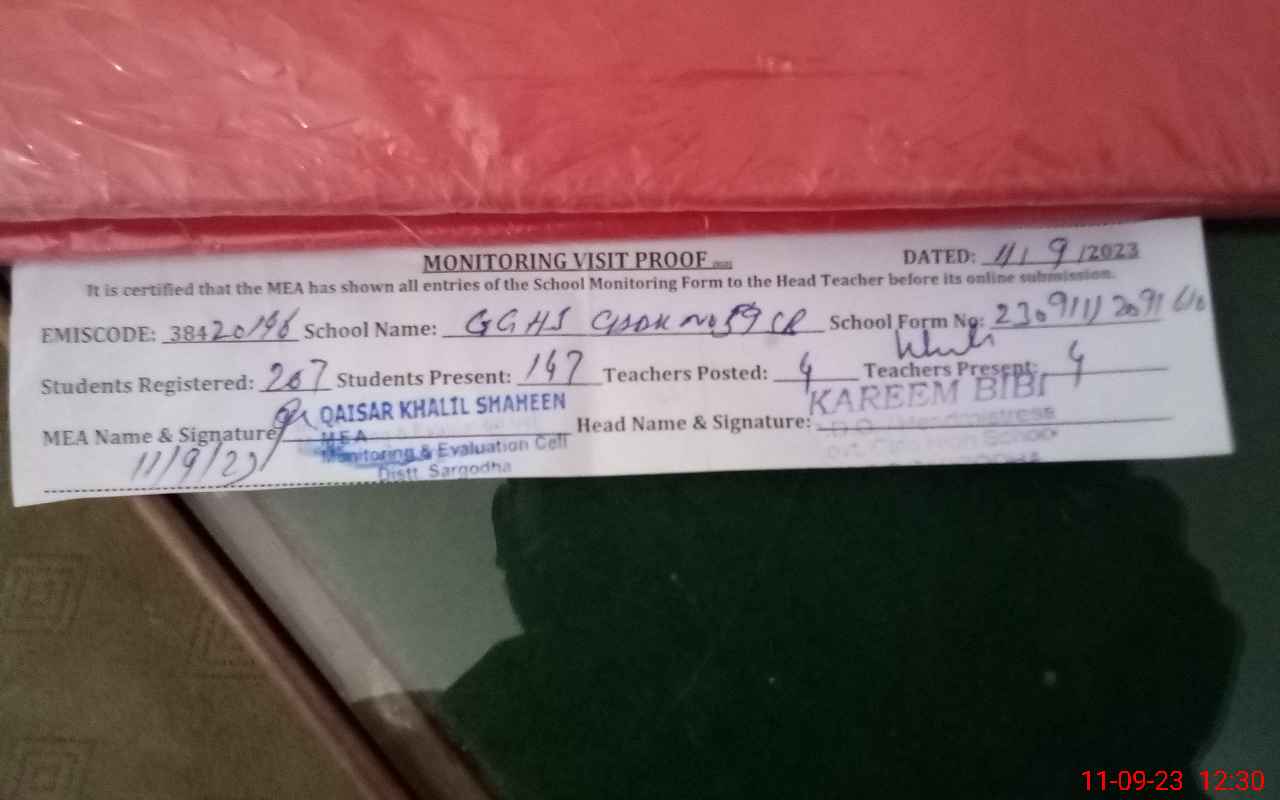 MONITORING VISIT PROOF
DATED: 11/9/2023
It is certified that the MEA has shown all entries of the School Monitoring Form to the Head Teacher before its online submission.
EMISCODE: 38420196 School Name: GGHS No 59 School Form No:
Students Registered: 207 Students Present: 147 Teachers Posted: 4 Teachers Present: 4
MEA Name & Signature QAISAR KHALIL SHAHEEN Head Name & Signature: KAREEM BIBI
MEA
Headmistress
Monitoring & Evaluation Cell
School
11/9/23 Distt. Sargodha
11-09-23 12:30